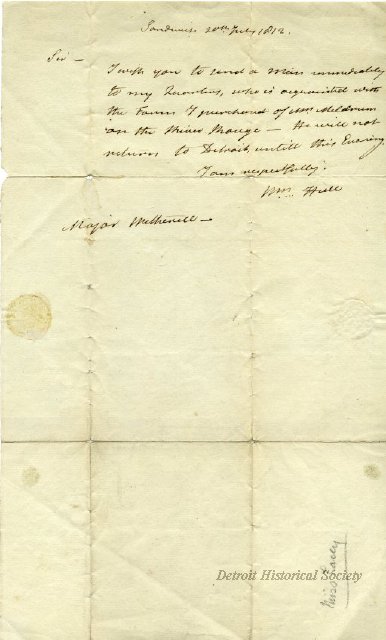 Sandwich 20th July 1812.
Sir —
I wish you to send a man immediately
to my Quarters, who is acquainted with
the Farm I purchased of Mr. Meldrum
on the River Rouge — He will not
return to Detroit, untill this Evening
I am respectfully.
Wm. Hull
Major Witherell —
Detroit Historical Society
Miss Lacey